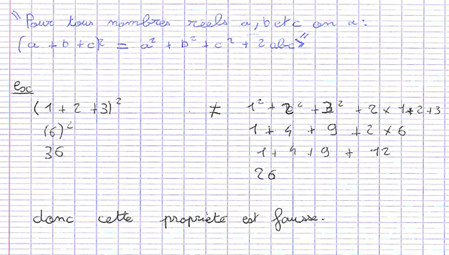 "Pour tous nombres réels a, b et c on a :
(a + b + c)² = a² + b² + c² + 2abc"
ex
(1 + 2 + 3)² ≠ 1² + 2² + 3² + 2 × 1 × 2 × 3
(6)² 1 + 4 + 9 + 2 × 6
36 1 + 4 + 9 + 12
26
donc cette propriété est fausse.